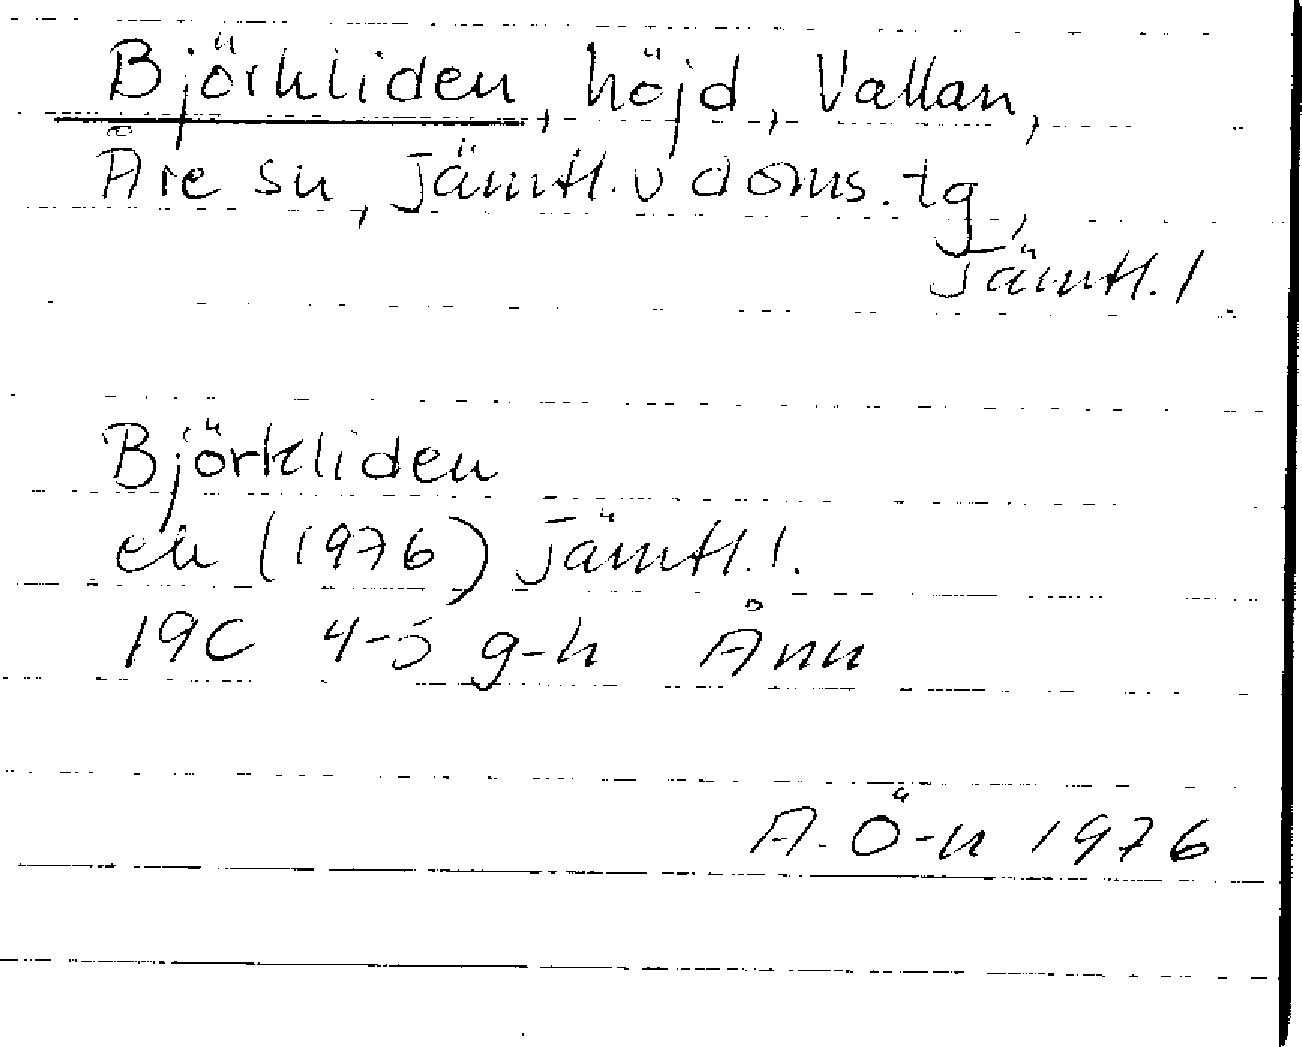 Björkliden, höjd, Vallan,
Åre sn, Jämtl. v doms. tg,
Jämtl. l
Björkliden
ek (1976) Jämtl. l.
19C 4-5 g-h Ånn
A. Ö-n 1976